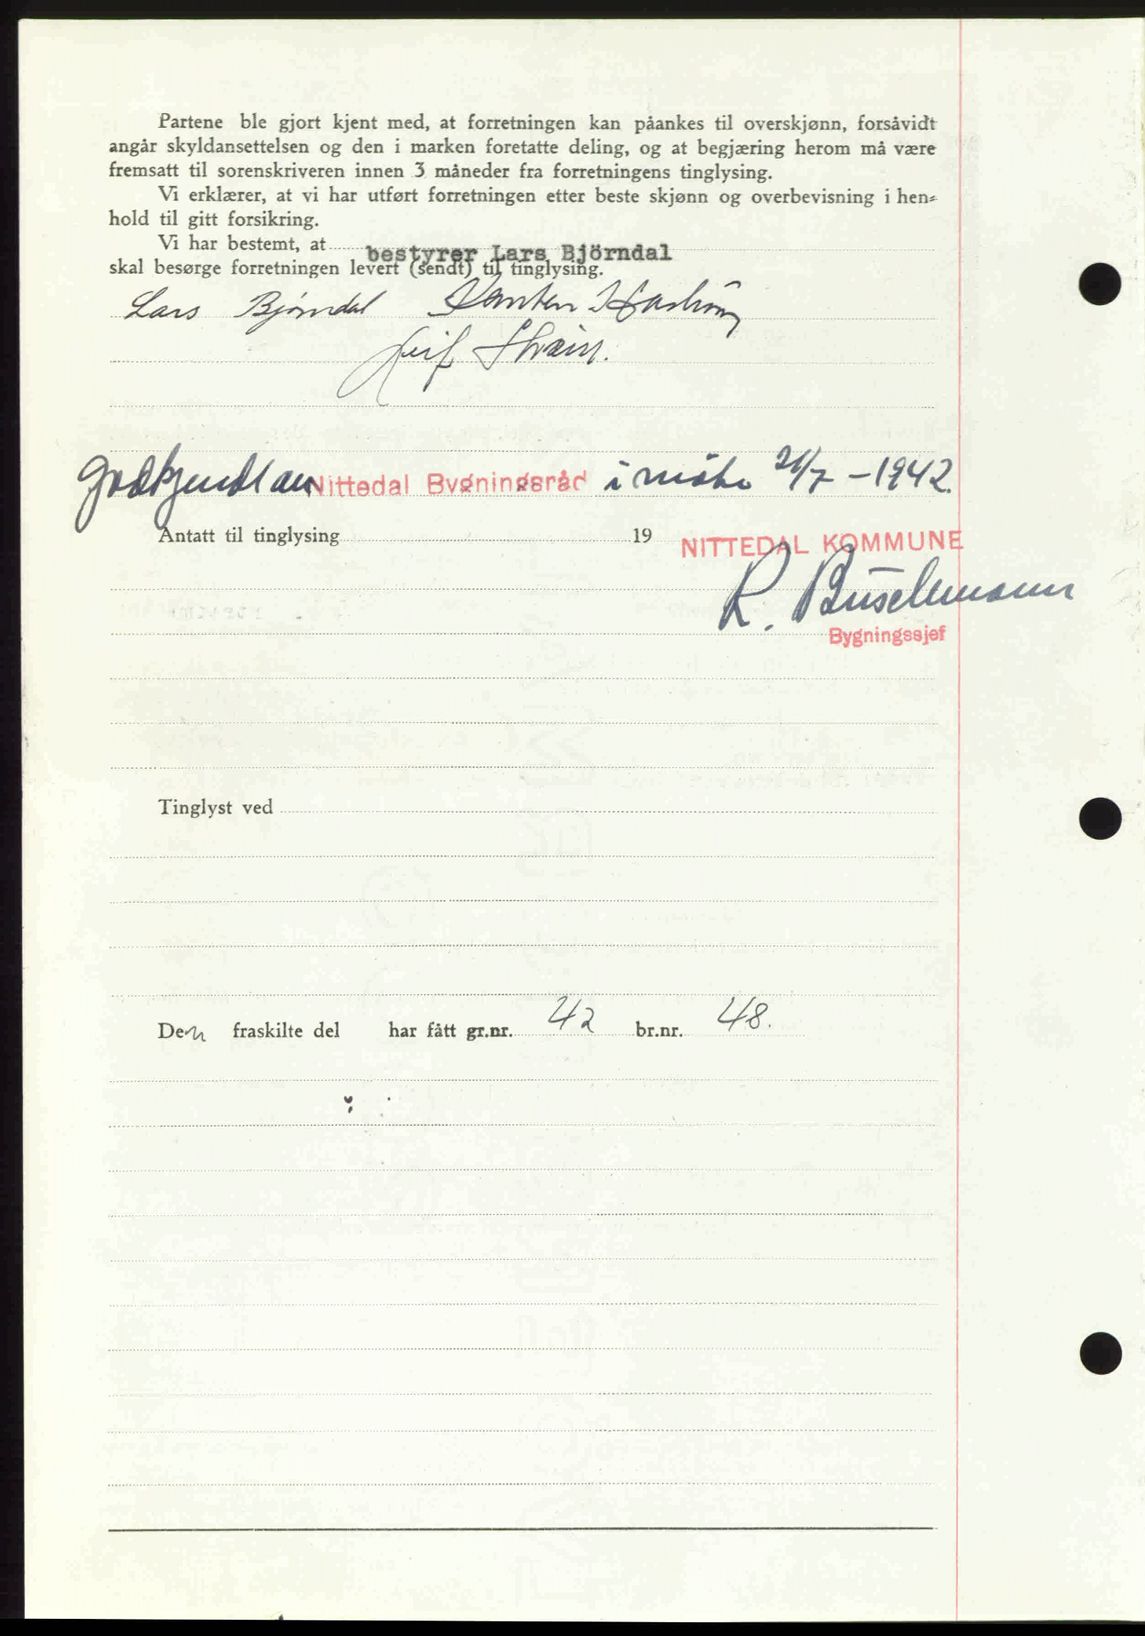 Partene ble gjort kjent med, at forretningen kan påankes til overskjønn, forsåvidt
angår skyldansettelsen og den i marken foretatte deling, og at begjæring herom må være
fremsatt til sorenskriveren innen 3 måneder fra forretningens tinglysing.
Vi erklærer, at vi har utført forretningen etter beste skjønn og overbevisning i hen-
hold til gitt forsikring.
Vi har bestemt, at bestyrer Lars Björndal
skal besørge forretningen levert (sendt) til tinglysing.
Lars Bjørndal
Leif
Godkjendt av Nittedal Bygningsråd i møte 21/7 -1942.
Antatt til tinglysing 19
NITTEDAL KOMMUNE
R.
Bygningssjef
Tinglyst ved
Den fraskilte del har fått gr.nr. 42 br.nr. 48.